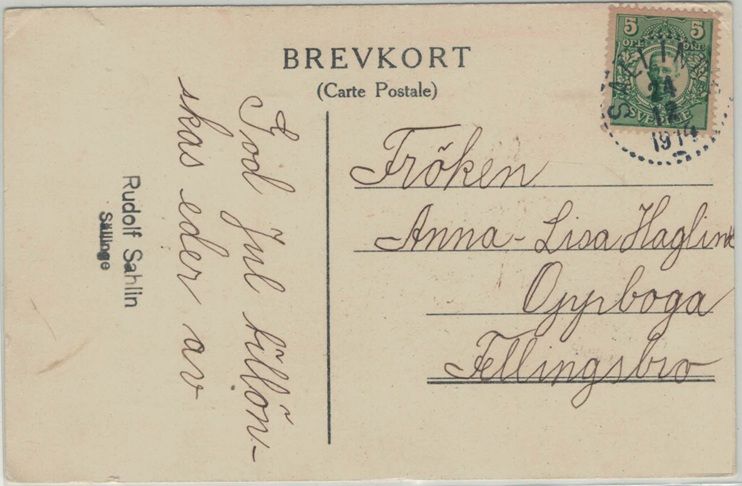 BREVKORT
(Carte Postale)
5 5
24
12
1914
God Jul tillön-
skas eder av
Rudolf Sahlin
Sällinge
Fröken
Anna-Lisa Haglind
Oppboga
Fellingsbro